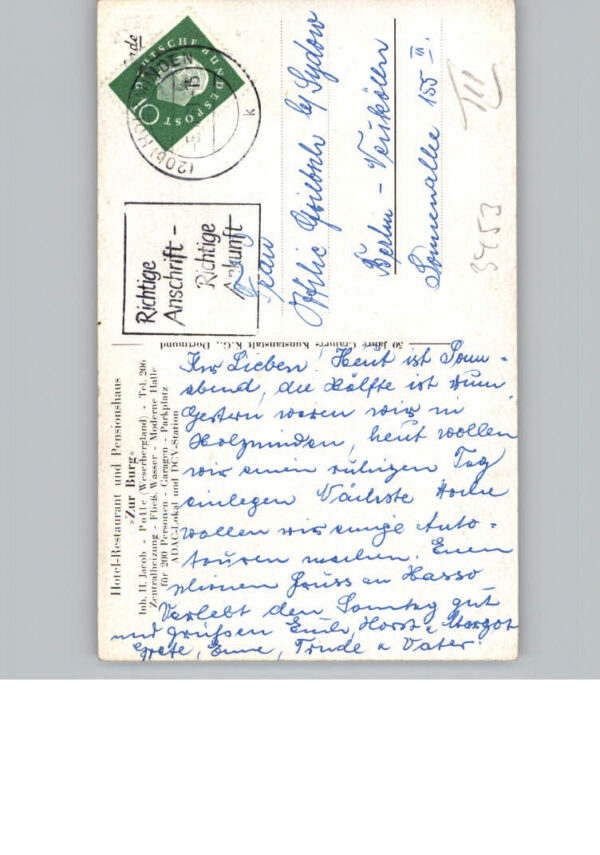 Hotel-Restaurant und Pensionshaus
»Zur Burg«
Inh. H. Jacob - Polle (Weserbergland) - Tel. 206
Zentralheizung - Fließ. Wasser - Moderne Halle
für 200 Personen - Garagen - Parkplatz
ADAC-Lokal und DCV-Station
Ihr Lieben! Heut ist Sonn-
abend, die Hälfte ist rum
Gestern waren wir in
Holzminden, heut wollen
wir einen ruhigen Tag
einlegen Nächste Woche
wollen wir einige Auto-
touren machen. Einen
kleinen Gruss an Hasso
Verlebt den Sonntag gut
und grüßen Euch, Horst u Margot
Grete, Erne, Trude u Vater.
50 Jahre Cramers Kunstanstalt K.G., Dortmund
DEUTSCHE BUNDESPOST
10
(20b) HOLZMINDEN
k
Richtige
Anschrift -
Richtige
Ankunft
Frau
b/ Sydow
Berlin - Neukölln
Sonnenallee 155 III.
III
3453